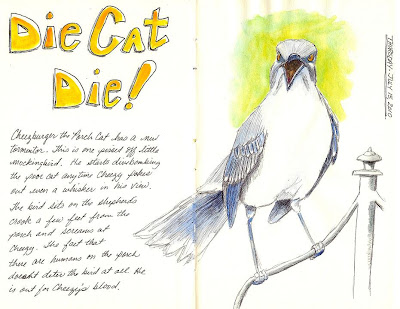 Die Cat
Die!
Cheezburger the Porch Cat has a new
tormentor. This is one pissed off little
mockingbird. He starts divebombing
the poor cat anytime Cheezy pokes
out even a whisker in his view.
The bird sits on the shepherds
crook a few feet from the
porch and screams at
Cheezy. The fact that
there are humans on the porch
doesn't deter the bird at all. He
is out for Cheezy's blood.
JULY 2010